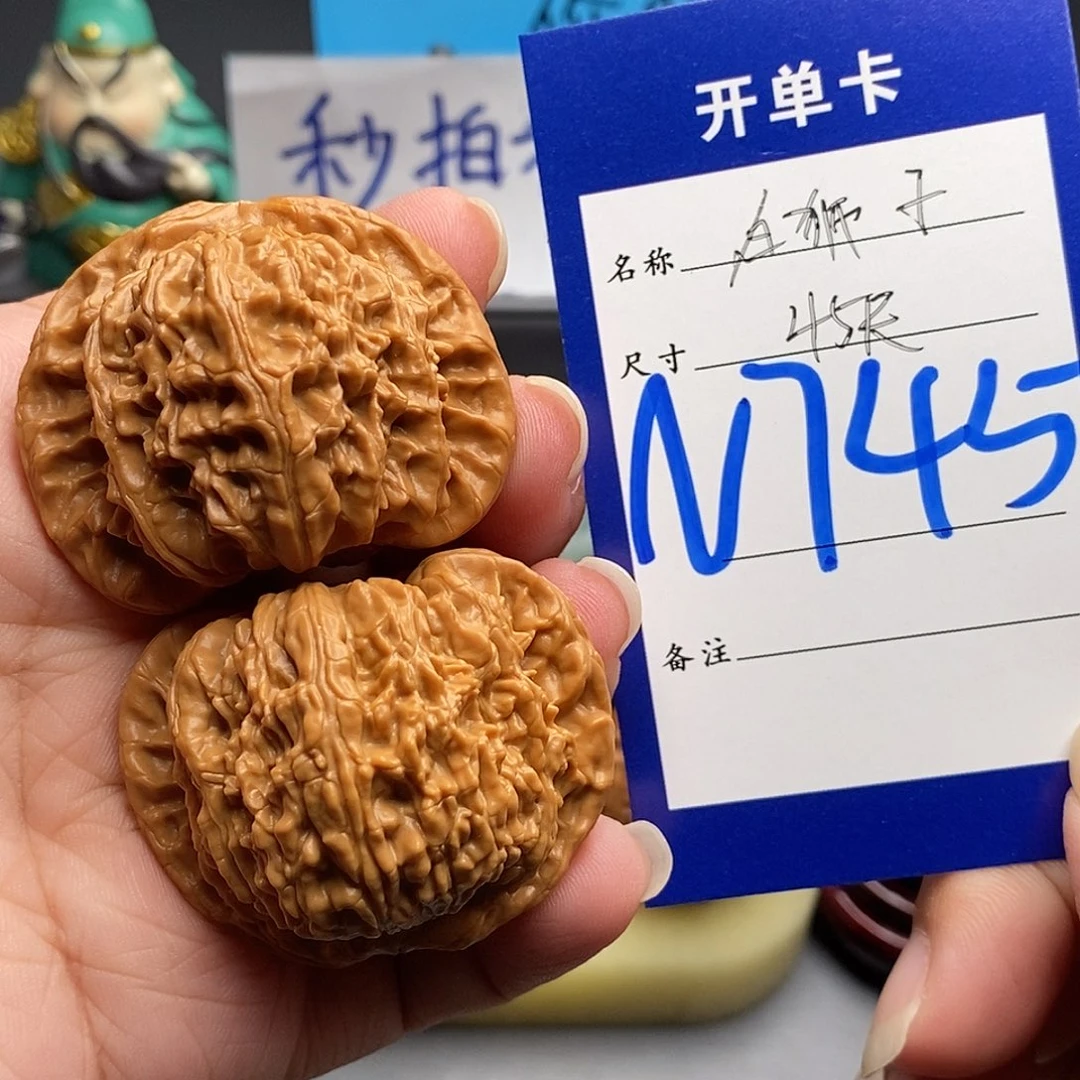 秒拍
开单卡
名称 白狮子
尺寸 45+
N745
备注